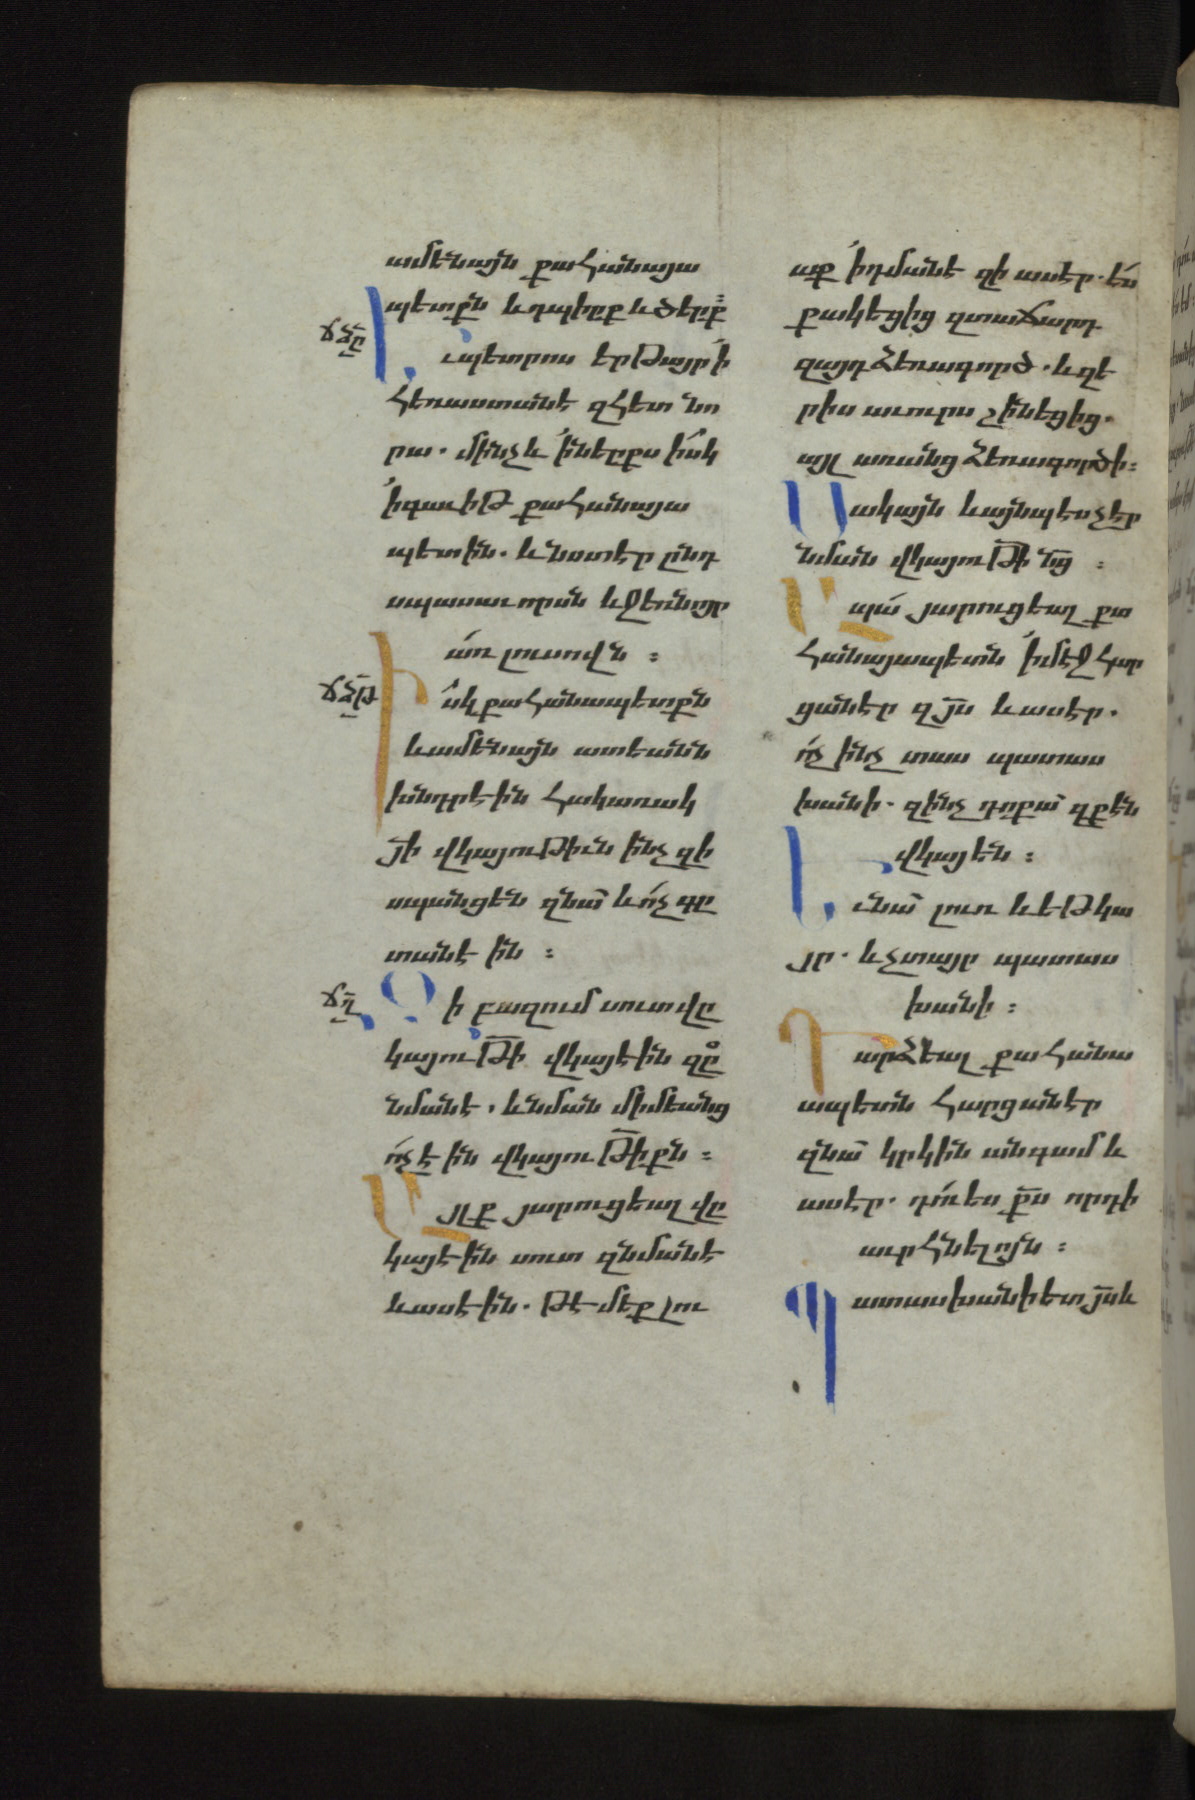 ամենայն քահանայա
պետքն և դպիրք և ծերք։
ճՁԸ
Եւ պետրոս երթայր ՛ի
հեռաստանէ զհետ նո
րա. մինչև ՛ի ներքս իսկ
՛ի գաւիթ քահանայա
պետին. և նստէր ընդ
սպասաւորսն և ջեռնոյր
առ լուսովն ։
ճՁԹ
Իսկ քահանապետքն
և ամենայն ատեանն
խնդրէին հակառակ
յի վկայութիւն ինչ զի
սպանցեն զնա և ոչ գը
տանէին ։
ճՂ
Զի բազում սուտ վը
կայութի վկայէին զը
նմանէ. և նման միմեանց
ոչ էին վկայութիքն ։
Այլք յարուցեալ վը
կայէին սուտ զնմանէ
և ասէին. թէ մեք լու
աք ՛ի դմանէ զի ասէր. ես
քակեցից զտաճարդ
զայդ ձեռագործ. և զե
րիս աւուրս շինեցից.
այլ առանց ձեռագործի։
Սակայն և այնպես չէր
նման վկայութի նց ։
Ապա յարուցեալ քա
հանայապետն ՛ի մէջ հար
ցանէր զյս և ասէր.
ոչ ինչ տաս պատաս
խանի. զինչ դոքա զքէն
վկայեն ։
Եւ նա լուռ ևեթ կա
յր. և չտայր պատաս
խանի ։
Դարձեալ քահանա
ապետն հարցանէր
զնա կրկին անգամ և
ասէր. դու ես քս որդի
աւրհնելոյն ։
Պատասխանի ետ յս և